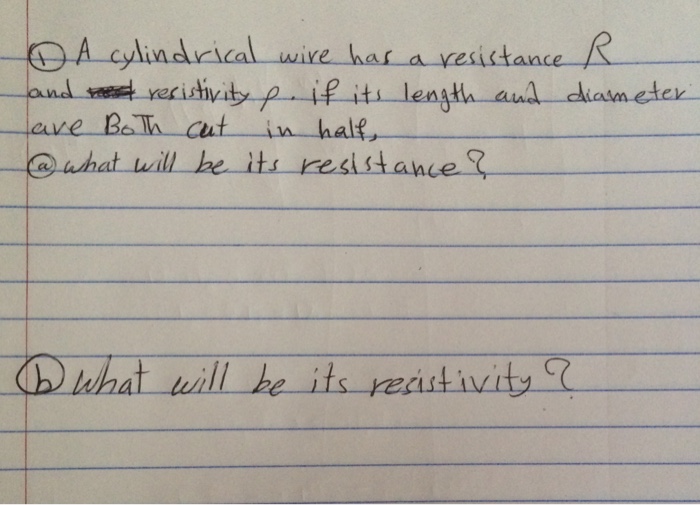 ① A cylindrical wire has a resistance R
and resistivity ρ. if its length and diameter
are BoTh cut in half,
ⓐ what will be its resistance?
ⓑ what will be its resistivity?